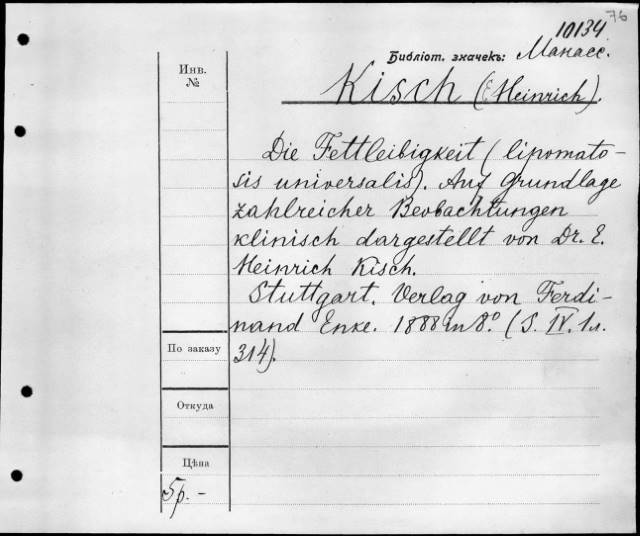 76
10134
Библіот. значекъ: Манасс.
Инв.
№
Kisch (E Heinrich).
Die Fettleibigkeit (lipomato-
sis universalis). Auf Grundlage
zahlreicher Beobachtungen
klinisch dargestellt von Dr. E.
Heinrich Kisch.
Stuttgart. Verlag von Ferdi-
nand Enke. 1888 in 8º. (S. IV. 1 л.
314).
По заказу
Откуда
Цѣна
5р. -